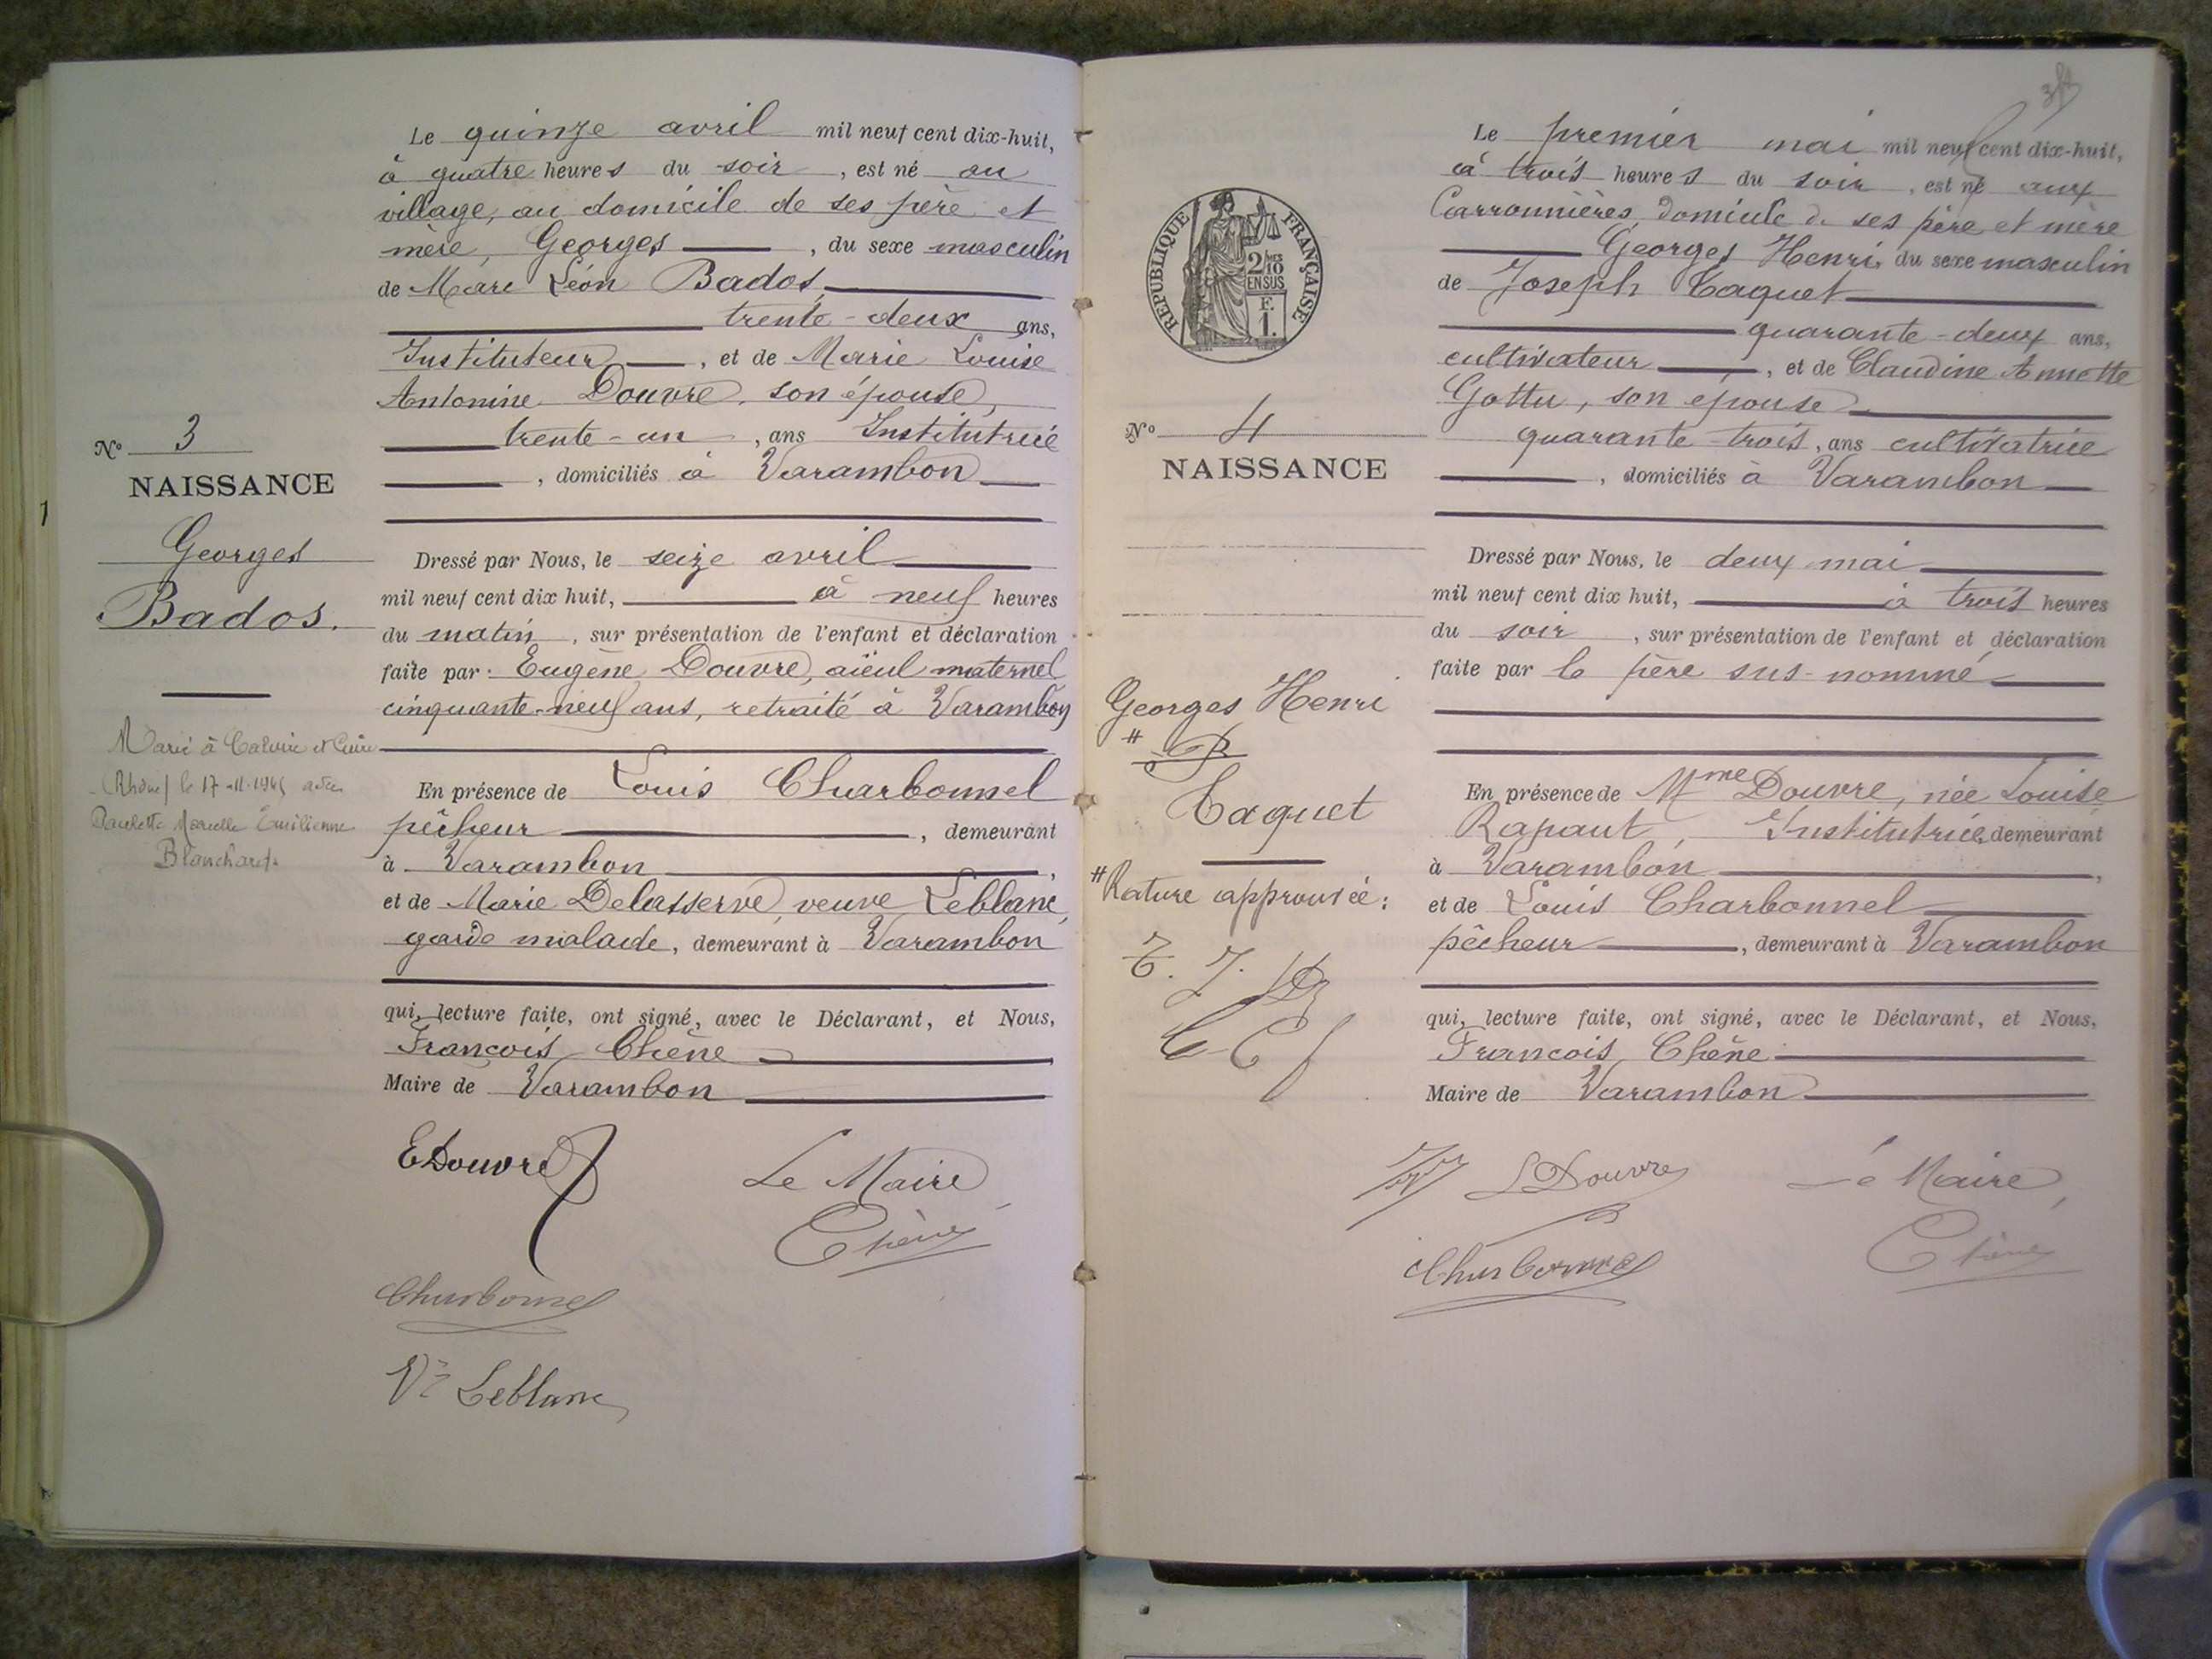 Le quinze avril mil neuf cent dix-huit,
à quatre heures du soir, est né au
village, au domicile de ses père et
mère, Georges, du sexe masculin
de Marc Léon Bados,
trente-deux ans,
Instituteur, et de Marie Louise
Antonine Douvre, son épouse,
trente-un, ans Institutrice
, domiciliés à Varambon
Nº 3
NAISSANCE
Georges
Bados.
Marié à Caluire et Cuire
(Rhône) le 17-11-1945 avec
Paulette Marcelle Emilienne
Blanchard.
Dressé par Nous, le seize avril
mil neuf cent dix huit, à neuf heures
du matin, sur présentation de l'enfant et déclaration
faite par Eugène Douvre, aïeul maternel
cinquante-neuf ans, retraité à Varambon
En présence de Louis Charbonnel
pêcheur, demeurant
à Varambon,
et de Marie Delasserve, veuve Leblanc,
garde malade, demeurant à Varambon
qui, lecture faite, ont signé, avec le Déclarant, et Nous,
François Chêne
Maire de Varambon
EDouvre
Le Maire
Chêne
Charbonnel
Vve Leblanc
Le premier mai mil neuf cent dix-huit,
à trois heures du soir, est né aux
Carronnières, domicile de ses père et mère
Georges Henri, du sexe masculin
de Joseph Taquet
quarante-deux ans,
cultivateur, et de Claudine Annette
Gottu, son épouse
quarante-trois, ans cultivatrice
, domiciliés à Varambon
RÉPUBLIQUE FRANÇAISE
2/10
EN SUS
F.
1.
Nº 4
NAISSANCE
Georges Henri
# B
Taquet
# Rature approuvée:
T. J. LD
C C
Dressé par Nous, le deux mai
mil neuf cent dix huit, à trois heures
du soir, sur présentation de l'enfant et déclaration
faite par le père sus-nommé
En présence de Mme Douvre, née Louise
Rapaut, Institutrice, demeurant
à Varambon,
et de Louis Charbonnel
pêcheur, demeurant à Varambon
qui, lecture faite, ont signé, avec le Déclarant, et Nous,
François Chêne
Maire de Varambon
LDouvre
Le Maire,
Charbonnel
Chêne